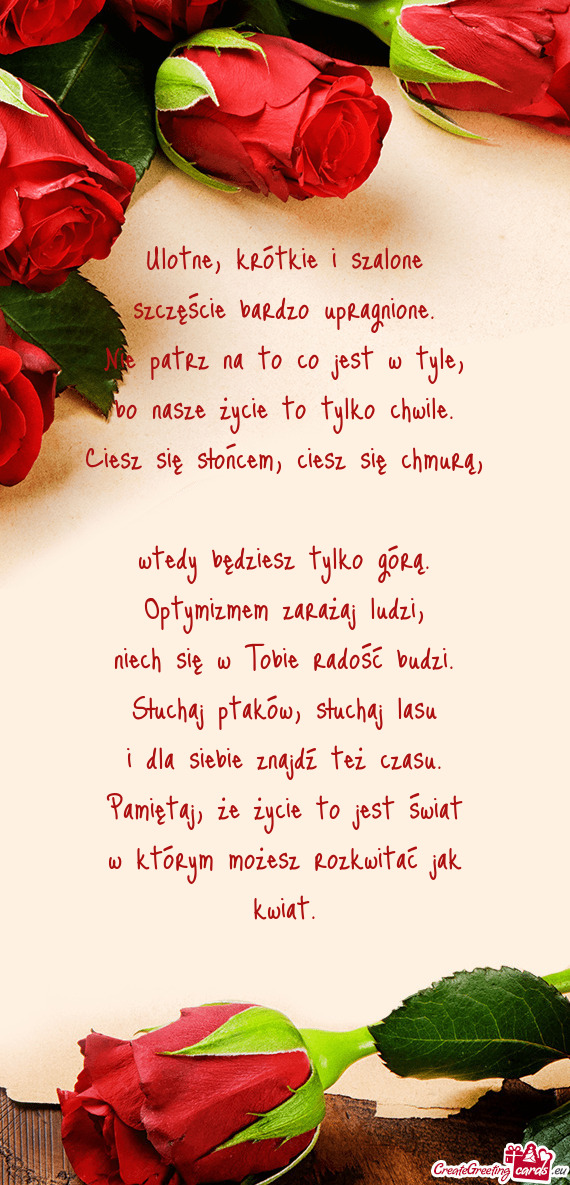 Ulotne, krótkie i szalone
szczęście bardzo upragnione.
Nie patrz na to co jest w tyle,
bo nasze życie to tylko chwile.
Ciesz się słońcem, ciesz się chmurą,
wtedy będziesz tylko górą.
Optymizmem zarażaj ludzi,
niech się w Tobie radość budzi.
Słuchaj ptaków, słuchaj lasu
i dla siebie znajdź też czasu.
Pamiętaj, że życie to jest świat
w którym możesz rozkwitać jak
kwiat.
CreateGreetingcards.eu